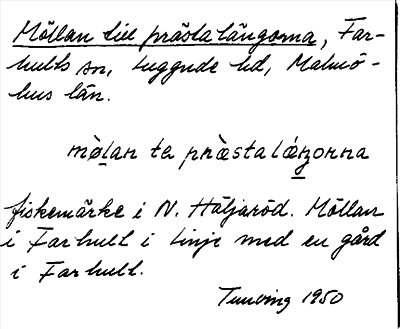 Möllan till prästalängorna, Far-
hults sn, Luggude hd, Malmö-
hus län.
mø̀lan ta pràstalá̱ŋorna
fiskemärke i N. Häljaröd. Möllan
i Farhult i linje med en gård
i Farhult.
Tuneving 1950